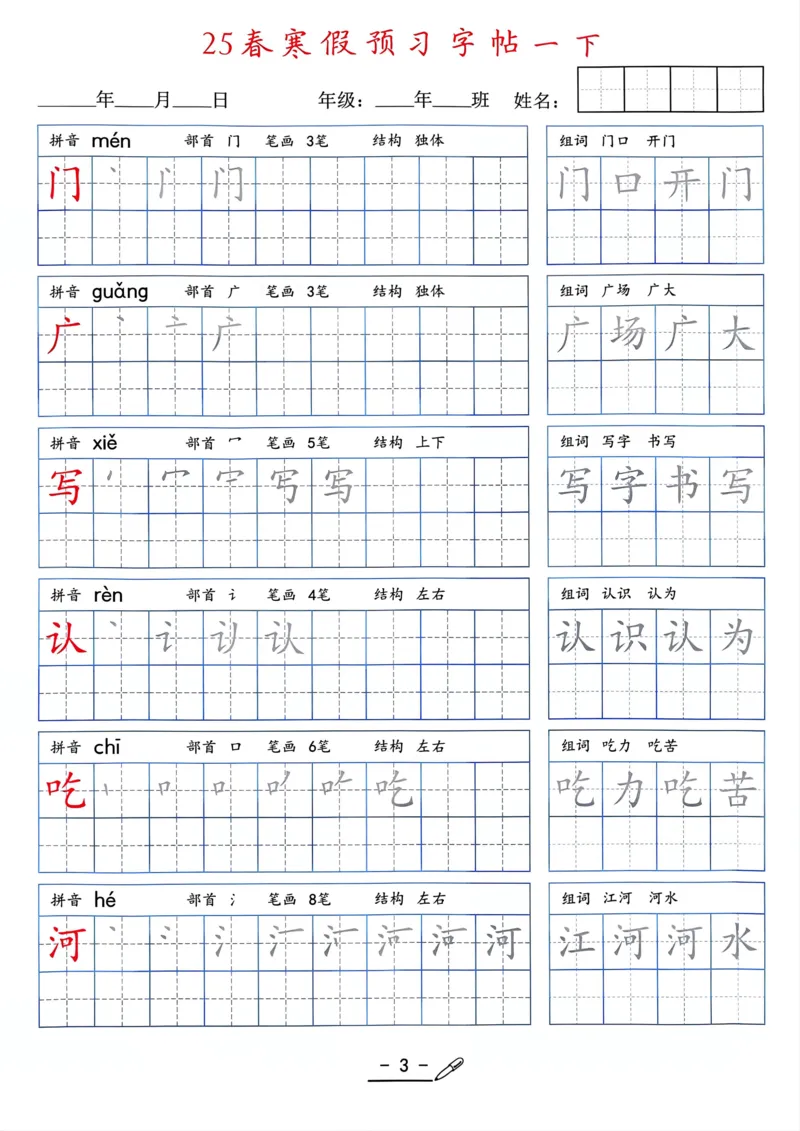 25春寒假预习字帖一下
______年____月____日 年级：____年____班 姓名：
拼音 mén 部首 门 笔画 3笔 结构 独体 组词 门口 开门
门 丶 门 门 门口开门
拼音 guǎng 部首 广 笔画 3笔 结构 独体 组词 广场 广大
广 丶 亠 广 广场广大
拼音 xiě 部首 冖 笔画 5笔 结构 上下 组词 写字 书写
写 丶 冖 写 写 写字书写
拼音 rèn 部首 讠 笔画 4笔 结构 左右 组词 认识 认为
认 丶 讠 认 认识认为
拼音 chī 部首 口 笔画 6笔 结构 左右 组词 吃力 吃苦
吃 丨 口 吃 吃力吃苦
拼音 hé 部首 氵 笔画 8笔 结构 左右 组词 江河 河水
河 丶 氵 河 江河河水
- 3 -